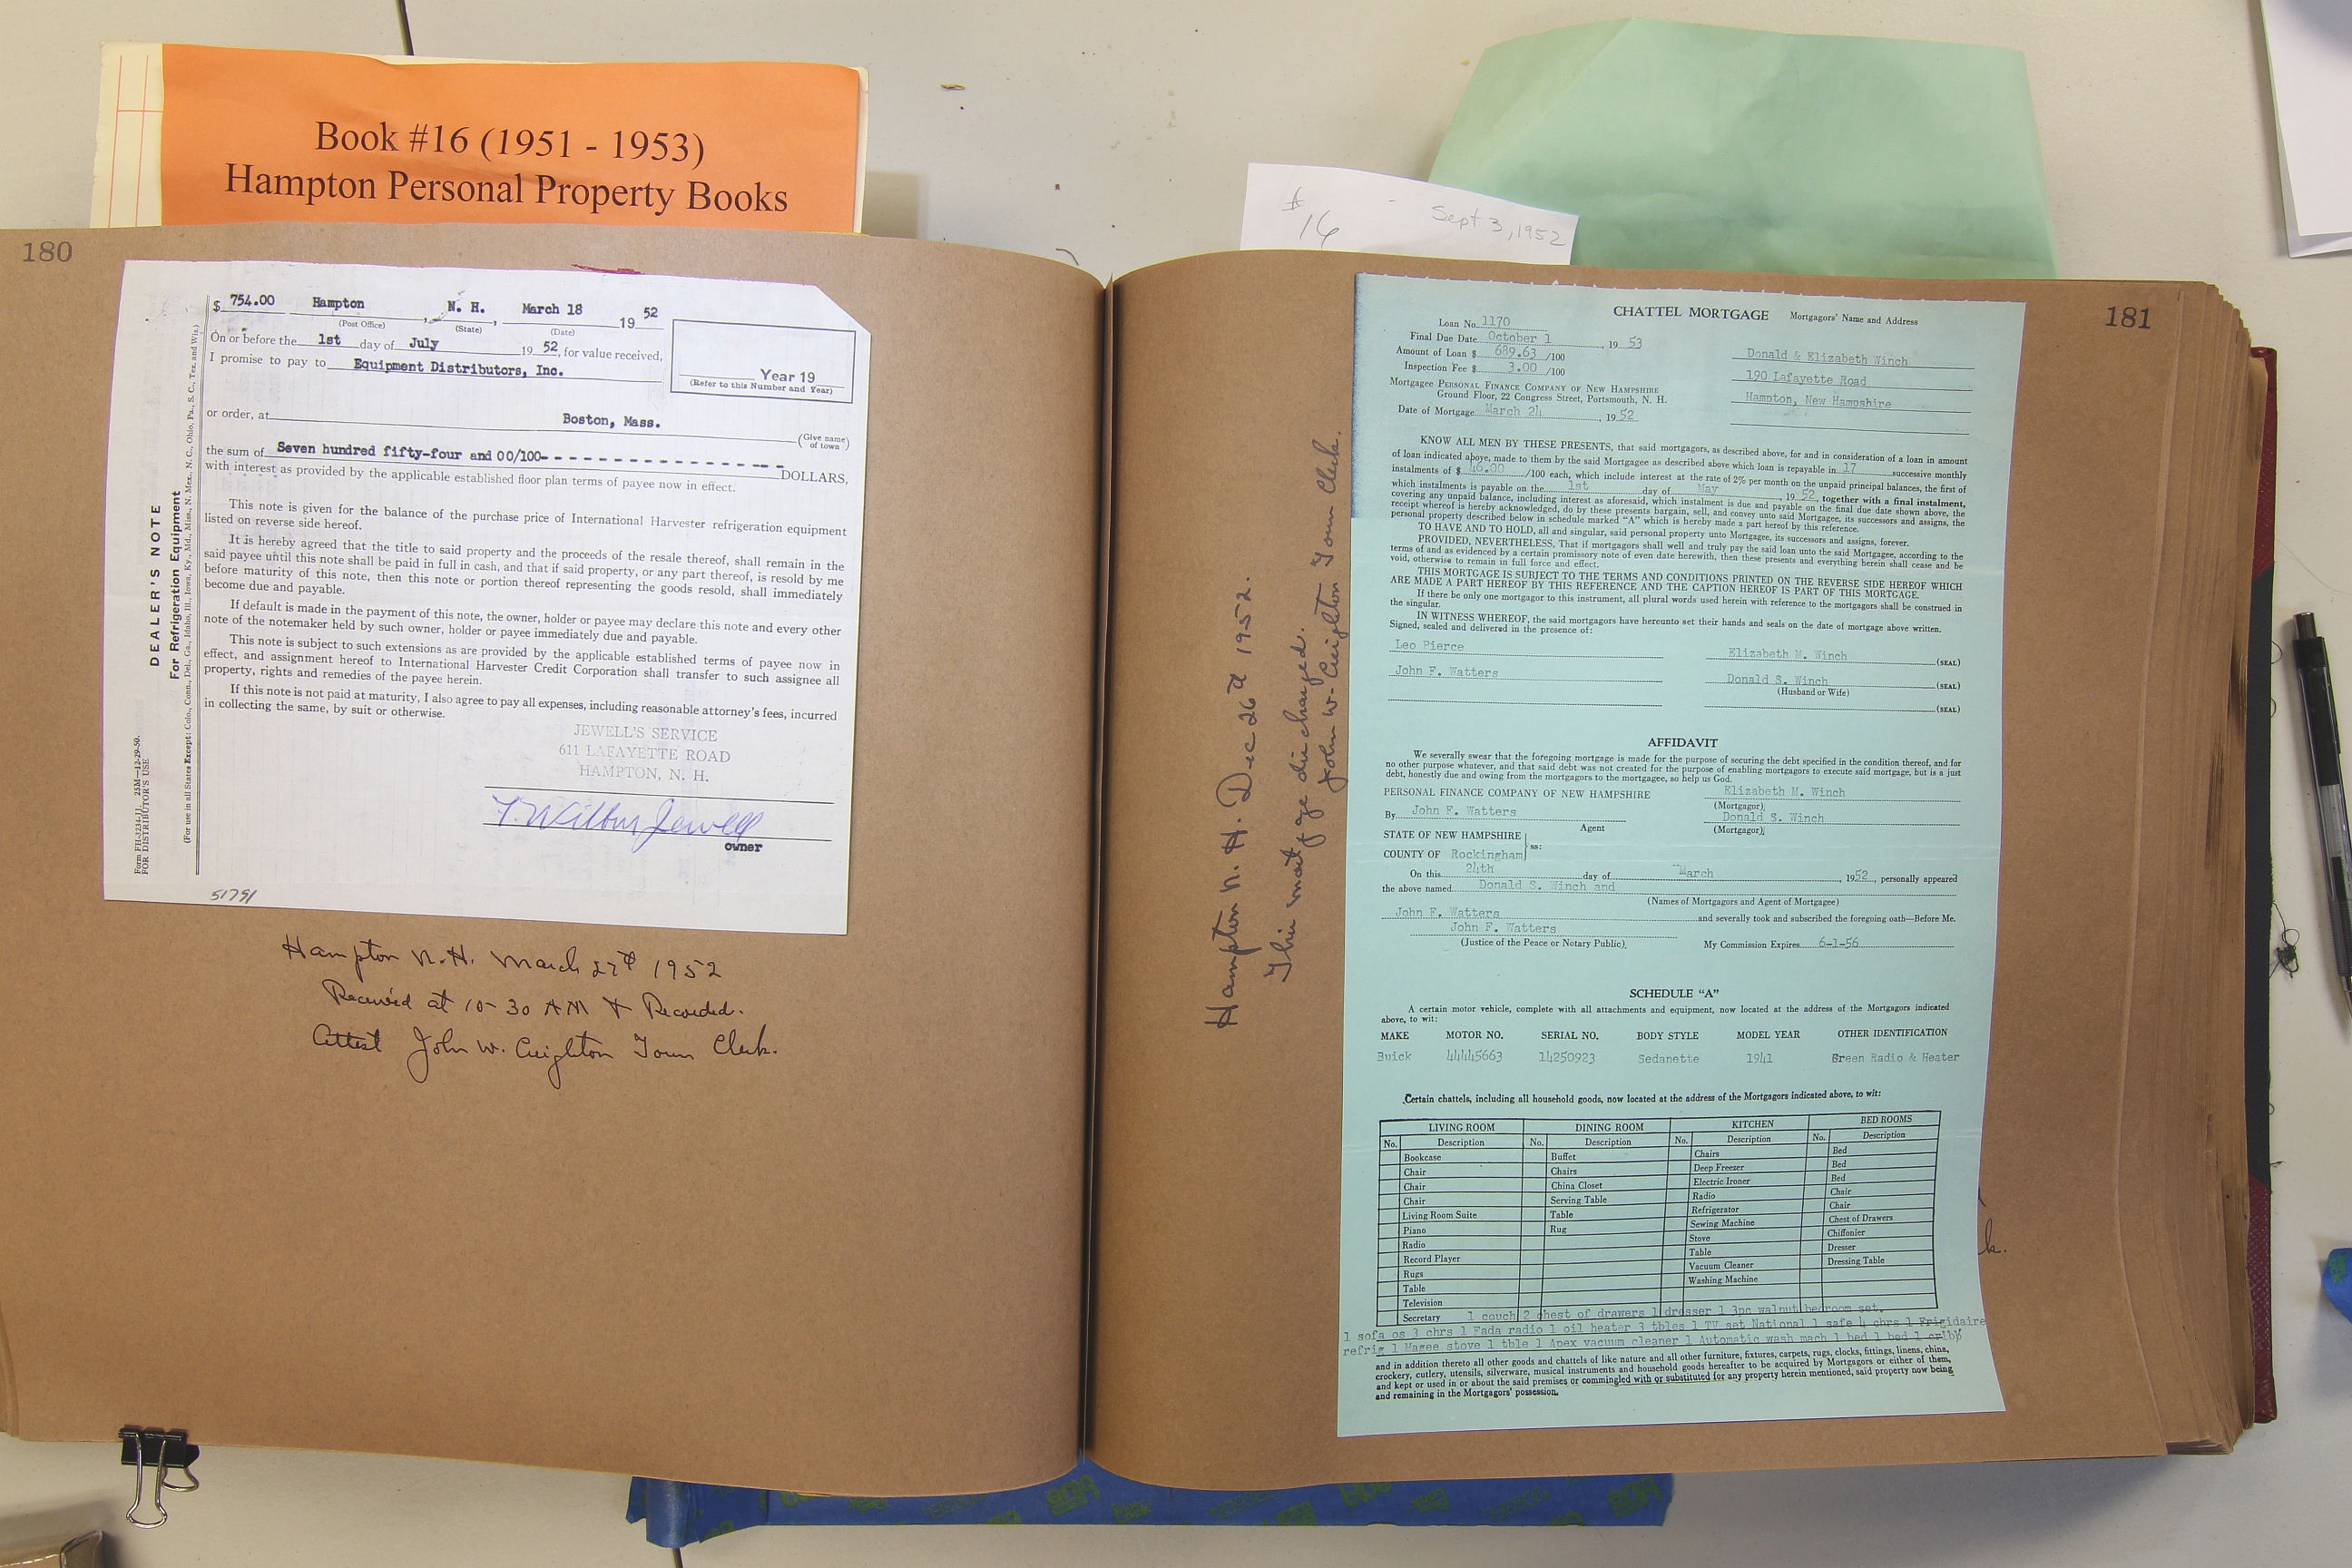 Book #16 (1951 - 1953)
Hampton Personal Property Books
# 16 - Sept 3, 1952
180
$ 754.00 Hampton, N. H., March 18 19 52
(Post Office) (State) (Date)
On or before the 1st day of July 19 52, for value received,
I promise to pay to Equipment Distributors, Inc.
Year 19
(Refer to this Number and Year)
or order, at Boston, Mass. (Give name of town)
the sum of Seven hundred fifty-four and 00/100- - - - - - - - - - - - - - - - - - - DOLLARS,
with interest as provided by the applicable established floor plan terms of payee now in effect.
This note is given for the balance of the purchase price of International Harvester refrigeration equipment
listed on reverse side hereof.
It is hereby agreed that the title to said property and the proceeds of the resale thereof, shall remain in the
said payee until this note shall be paid in full in cash, and that if said property, or any part thereof, is resold by me
before maturity of this note, then this note or portion thereof representing the goods resold, shall immediately
become due and payable.
If default is made in the payment of this note, the owner, holder or payee may declare this note and every other
note of the notemaker held by such owner, holder or payee immediately due and payable.
This note is subject to such extensions as are provided by the applicable established terms of payee now in
effect, and assignment hereof to International Harvester Credit Corporation shall transfer to such assignee all
property, rights and remedies of the payee herein.
If this note is not paid at maturity, I also agree to pay all expenses, including reasonable attorney's fees, incurred
in collecting the same, by suit or otherwise.
JEWELL'S SERVICE
611 LAFAYETTE ROAD
HAMPTON, N. H.
T. Wilbur Jewell
owner
51791
DEALER'S NOTE
For Refrigeration Equipment
(For use in all States Except: Colo., Conn., Del., Ga., Idaho, Ill., Iowa, Ky., Md., Miss., N. Mex., N. C., Ohio, Pa., S. C., Tex. and Wis.)
25M—12-29-50.
FOR DISTRIBUTOR'S USE
Hampton N.H. March 27th 1952
Received at 10-30 AM & Recorded.
Attest John W. Creighton Town Clerk.
181
Hampton N. H. Dec 26th 1952.
This mortgage discharged.
John W. Creighton Town Clerk.
CHATTEL MORTGAGE
Mortgagors' Name and Address
Loan No. 1170
Final Due Date October 1, 19 53
Amount of Loan $ 689.63 /100
Inspection Fee $ 3.00 /100
Mortgagee PERSONAL FINANCE COMPANY OF NEW HAMPSHIRE
Ground Floor, 22 Congress Street, Portsmouth, N. H.
Date of Mortgage March 24, 19 52
Donald & Elizabeth Winch
190 Lafayette Road
Hampton, New Hampshire
KNOW ALL MEN BY THESE PRESENTS, that said mortgagors, as described above, for and in consideration of a loan in amount
of loan indicated above, made to them by the said Mortgagee as described above which loan is repayable in 17 successive monthly
instalments of $ 46.00 /100 each, which include interest at the rate of 2% per month on the unpaid principal balances, the first of
which instalments is payable on the 1st day of May, 19 52, together with a final instalment,
covering any unpaid balance, including interest as aforesaid, which instalment is due and payable on the final due date shown above, the
receipt whereof is hereby acknowledged, do by these presents bargain, sell, and convey unto said Mortgagee, its successors and assigns, the
personal property described below in schedule marked "A" which is hereby made a part hereof by this reference.
TO HAVE AND TO HOLD, all and singular, said personal property unto Mortgagee, its successors and assigns, forever.
PROVIDED, NEVERTHELESS, That if mortgagors shall well and truly pay the said loan unto the said Mortgagee, according to the
terms of and as evidenced by a certain promissory note of even date herewith, then these presents and everything herein shall cease and be
void, otherwise to remain in full force and effect.
THIS MORTGAGE IS SUBJECT TO THE TERMS AND CONDITIONS PRINTED ON THE REVERSE SIDE HEREOF WHICH
ARE MADE A PART HEREOF BY THIS REFERENCE AND THE CAPTION HEREOF IS PART OF THIS MORTGAGE.
If there be only one mortgagor to this instrument, all plural words used herein with reference to the mortgagors shall be construed in
the singular.
IN WITNESS WHEREOF, the said mortgagors have hereunto set their hands and seals on the date of mortgage above written.
Signed, sealed and delivered in the presence of:
Leo Pierce Elizabeth M. Winch (SEAL)
John F. Watters Donald S. Winch (SEAL)
(Husband or Wife)
(SEAL)
AFFIDAVIT
We severally swear that the foregoing mortgage is made for the purpose of securing the debt specified in the condition thereof, and for
no other purpose whatever, and that said debt was not created for the purpose of enabling mortgagors to execute said mortgage, but is a just
debt, honestly due and owing from the mortgagors to the mortgagee, so help us God.
PERSONAL FINANCE COMPANY OF NEW HAMPSHIRE Elizabeth M. Winch
(Mortgagor)
By John F. Watters Donald S. Winch
Agent (Mortgagor)
STATE OF NEW HAMPSHIRE
ss:
COUNTY OF Rockingham
On this 24th day of March, 1952, personally appeared
the above named Donald S. Winch and
(Names of Mortgagors and Agent of Mortgagee)
John F. Watters and severally took and subscribed the foregoing oath—Before Me.
John F. Watters
(Justice of the Peace or Notary Public) My Commission Expires 6-1-56
SCHEDULE "A"
A certain motor vehicle, complete with all attachments and equipment, now located at the address of the Mortgagors indicated
above, to wit:
MAKE MOTOR NO. SERIAL NO. BODY STYLE MODEL YEAR OTHER IDENTIFICATION
Buick 44445663 14250923 Sedanette 1941 Green Radio & Heater
Certain chattels, including all household goods, now located at the address of the Mortgagors indicated above, to wit:
LIVING ROOM DINING ROOM KITCHEN BED ROOMS
No. Description No. Description No. Description No. Description
Bookcase Buffet Chairs Bed
Chair Chairs Deep Freezer Bed
Chair China Closet Electric Ironer Bed
Chair Serving Table Radio Chair
Living Room Suite Table Refrigerator Chair
Piano Rug Sewing Machine Chest of Drawers
Radio Stove Chiffonier
Record Player Table Dresser
Rugs Vacuum Cleaner Dressing Table
Table Washing Machine
Television
Secretary 1 couch 2 chest of drawers 1 dresser 1 3pc walnut bedroom set.
1 sofa os 3 chrs 1 Fada radio 1 oil heater 3 tbles 1 TV set National 1 safe 4 chrs 1 Frigidaire
refrig 1 Magee stove 1 tble 1 Apex vacuum cleaner 1 Automatic wash mach 1 bed 1 bed 1 crib
and in addition thereto all other goods and chattels of like nature and all other furniture, fixtures, carpets, rugs, clocks, fittings, linens, china,
crockery, cutlery, utensils, silverware, musical instruments and household goods hereafter to be acquired by Mortgagors or either of them,
and kept or used in or about the said premises or commingled with or substituted for any property herein mentioned, said property now being
and remaining in the Mortgagors' possession.